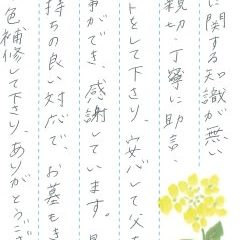 に関する知識が無い
親切丁寧に助言、
トをして下さり、安心して父を
事ができ、感謝しています。
持ちの良い対応で、お墓もき
色補修して下さり、ありがとうござ